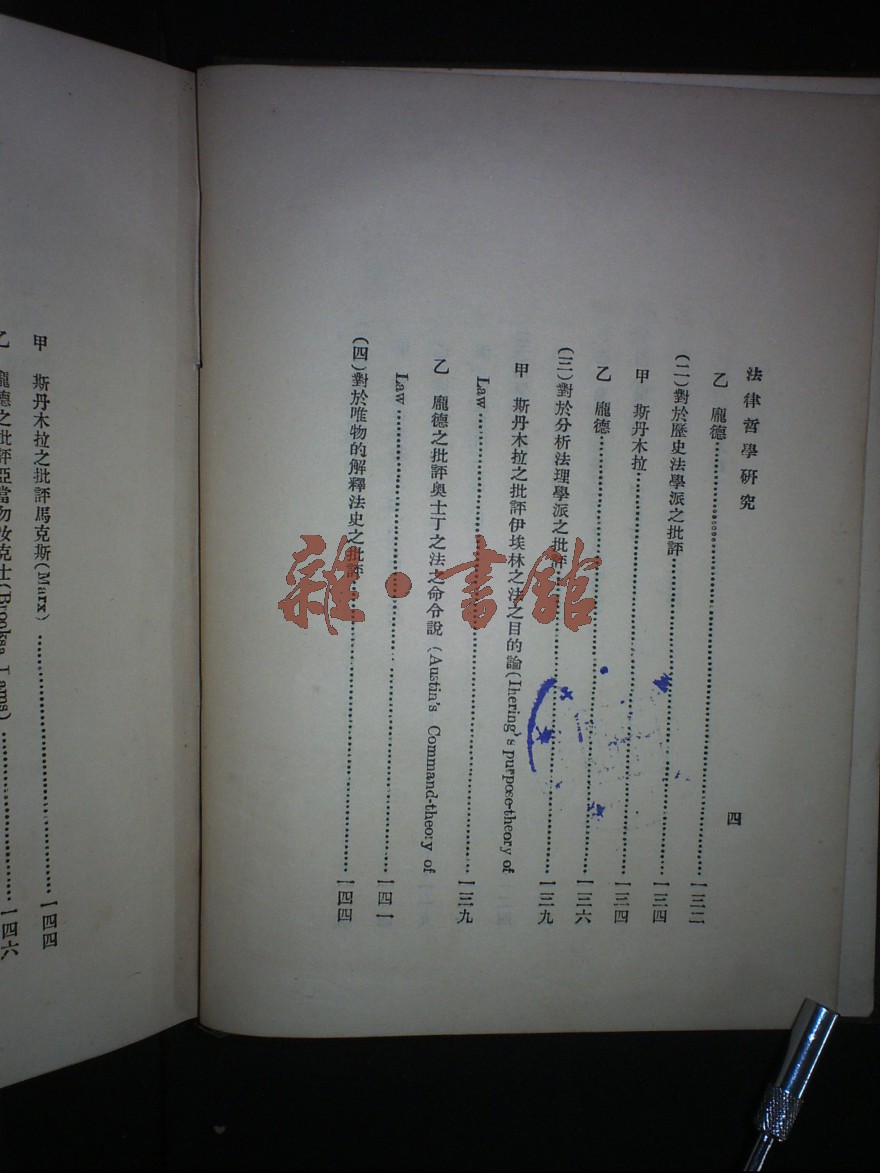 法律哲學研究
四
乙　龐德……一三二
(二)對於歷史法學派之批評……一三四
甲　斯丹木拉……一三四
乙　龐德……一三六
(三)對於分析法理學派之批評……一三九
甲　斯丹木拉之批評伊埃林之法之目的論(Ihering's purpose-theory of
Law……一三九
乙　龐德之批評奧士丁之法之命令說(Austin's Command-theory of
Law……一四一
(四)對於唯物的解釋法史之批評……一四四
甲　斯丹木拉之批評馬克斯(Marx)……一四四
乙　龐德之批評亞當勿汝克士(Brooksa……一四六
雜·書館